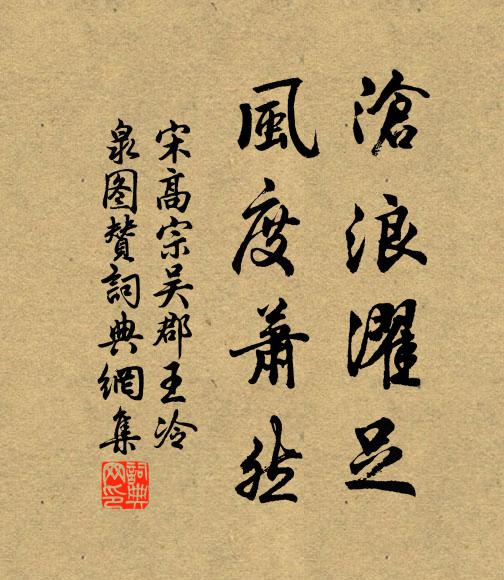 滄浪濯足
風度蕭然
宋高宗吴郡王冷
泉图赞詞典網集
詞典网印